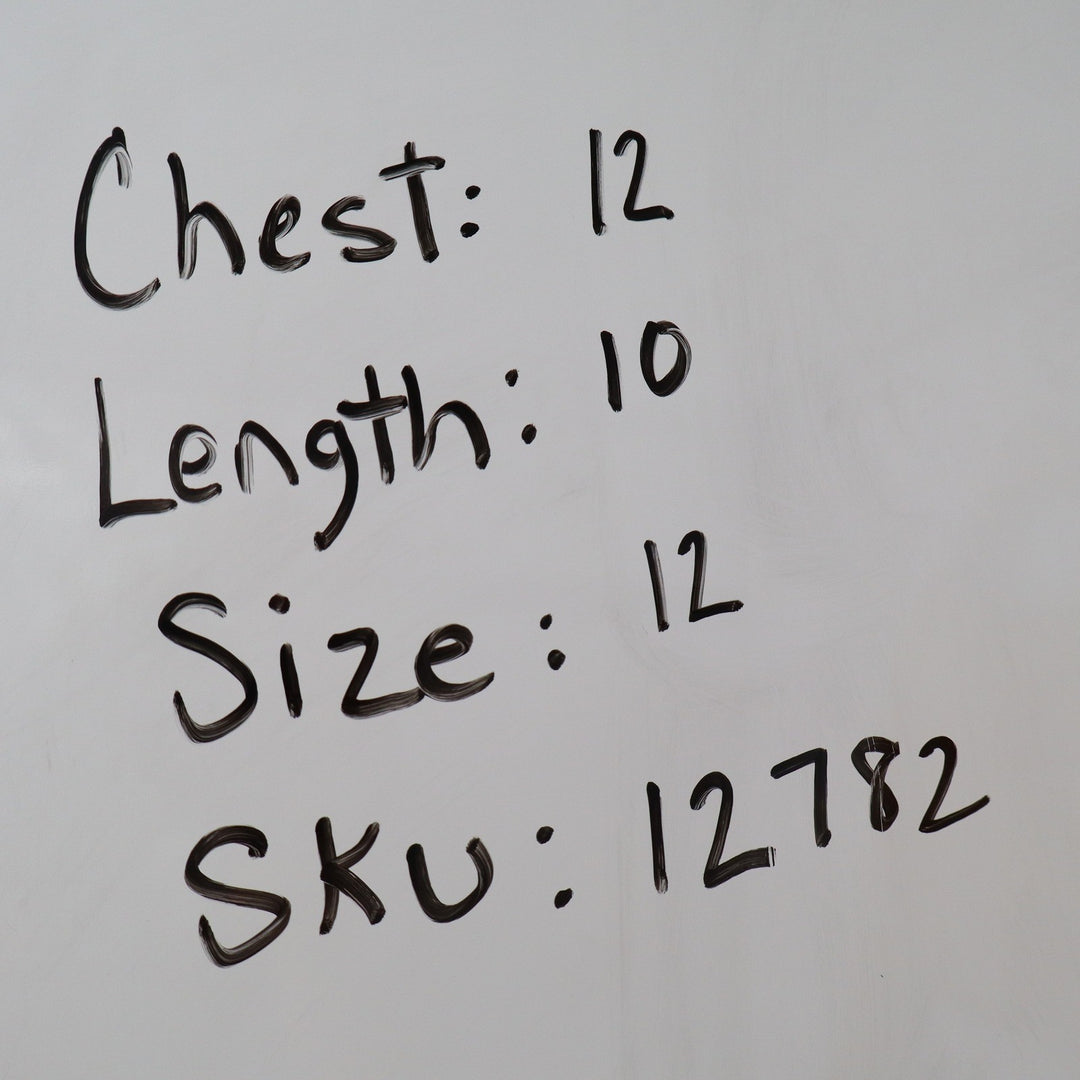 Chest: 12
Length: 10
Size: 12
SKU: 12782